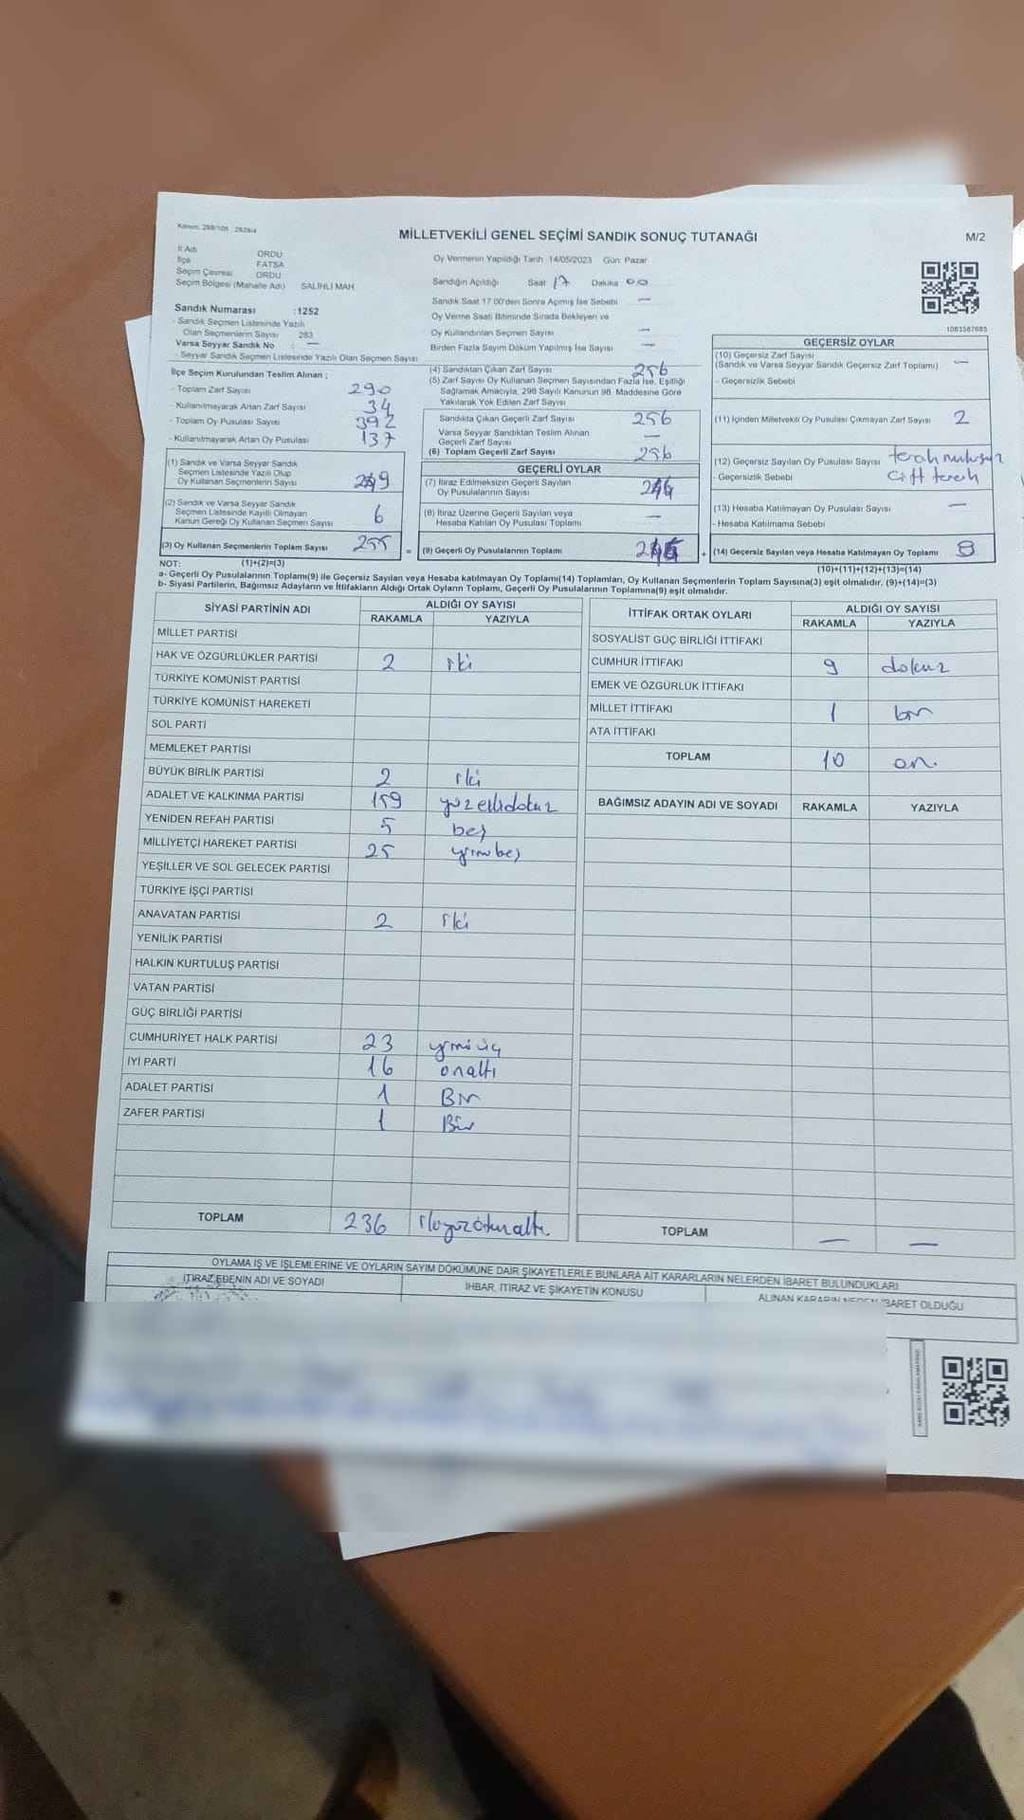 MİLLETVEKİLİ GENEL SEÇİMİ SANDIK SONUÇ TUTANAĞI
M/2
İl Adı ORDU
İlçe FATSA
Seçim Çevresi ORDU
Seçim Bölgesi (Mahalle Adı) SALİHLİ MAH.
Sandık Numarası :1252
- Sandık Seçmen Listesinde Yazılı
Olan Seçmenlerin Sayısı 283
Varsa Seyyar Sandık No : —
- Seyyar Sandık Seçmen Listesinde Yazılı Olan Seçmen Sayısı
İlçe Seçim Kurulundan Teslim Alınan ;
- Toplam Zarf Sayısı 290
- Kullanılmayarak Artan Zarf Sayısı 34
- Toplam Oy Pusulası Sayısı 392
- Kullanılmayarak Artan Oy Pusulası 137
(1) Sandık ve Varsa Seyyar Sandık
Seçmen Listesinde Yazılı Olup
Oy Kullanan Seçmenlerin Sayısı 249
(2) Sandık ve Varsa Seyyar Sandık
Seçmen Listesinde Kayıtlı Olmayan
Kanun Gereği Oy Kullanan Seçmen Sayısı 6
(3) Oy Kullanan Seçmenlerin Toplam Sayısı 255
(1)+(2)=(3)
Oy Vermenin Yapıldığı Tarih 14/05/2023 Gün: Pazar
Sandığın Açıldığı Saat 17 Dakika 00
Sandık Saat 17:00'den Sonra Açılmış İse Sebebi —
Oy Verme Saati Bitiminde Sırada Bekleyen ve
Oy Kullandırılan Seçmen Sayısı —
Birden Fazla Sayım Döküm Yapılmış İse Sayısı —
(4) Sandıktan Çıkan Zarf Sayısı 256
(5) Zarf Sayısı Oy Kullanan Seçmen Sayısından Fazla İse, Eşitliği
Sağlamak Amacıyla, 298 Sayılı Kanunun 98. Maddesine Göre
Yakılarak Yok Edilen Zarf Sayısı
Sandıkta Çıkan Geçerli Zarf Sayısı 256
Varsa Seyyar Sandıktan Teslim Alınan
Geçerli Zarf Sayısı —
(6) Toplam Geçerli Zarf Sayısı 256
GEÇERLİ OYLAR
(7) İtiraz Edilmeksizin Geçerli Sayılan
Oy Pusulalarının Sayısı
(8) İtiraz Üzerine Geçerli Sayılan veya
Hesaba Katılan Oy Pusulası Toplamı —
(9) Geçerli Oy Pusulalarının Toplamı
1081587685
GEÇERSİZ OYLAR
(10) Geçersiz Zarf Sayısı
(Sandık ve Varsa Seyyar Sandık Geçersiz Zarf Toplamı) —
- Geçersizlik Sebebi
(11) İçinden Milletvekili Oy Pusulası Çıkmayan Zarf Sayısı 2
(12) Geçersiz Sayılan Oy Pusulası Sayısı
- Geçersizlik Sebebi çift tercih
(13) Hesaba Katılmayan Oy Pusulası Sayısı —
- Hesaba Katılmama Sebebi
(14) Geçersiz Sayılan veya Hesaba Katılmayan Oy Toplamı 8
(10)+(11)+(12)+(13)=(14)
NOT:
a- Geçerli Oy Pusulalarının Toplamı(9) ile Geçersiz Sayılan veya Hesaba katılmayan Oy Toplamı(14) Toplamları, Oy Kullanan Seçmenlerin Toplam Sayısına(3) eşit olmalıdır. (9)+(14)=(3)
b- Siyasi Partilerin, Bağımsız Adayların ve İttifakların Aldığı Ortak Oyların Toplamı, Geçerli Oy Pusulalarının Toplamına(9) eşit olmalıdır.
SİYASİ PARTİNİN ADI ALDIĞI OY SAYISI
RAKAMLA YAZIYLA
MİLLET PARTİSİ
HAK VE ÖZGÜRLÜKLER PARTİSİ 2 iki
TÜRKİYE KOMÜNİST PARTİSİ
TÜRKİYE KOMÜNİST HAREKETİ
SOL PARTİ
MEMLEKET PARTİSİ
BÜYÜK BİRLİK PARTİSİ 2 iki
ADALET VE KALKINMA PARTİSİ 159 yüzellidokuz
YENİDEN REFAH PARTİSİ 5 beş
MİLLİYETÇİ HAREKET PARTİSİ 25 yirmibeş
YEŞİLLER VE SOL GELECEK PARTİSİ
TÜRKİYE İŞÇİ PARTİSİ
ANAVATAN PARTİSİ 2 iki
YENİLİK PARTİSİ
HALKIN KURTULUŞ PARTİSİ
VATAN PARTİSİ
GÜÇ BİRLİĞİ PARTİSİ
CUMHURİYET HALK PARTİSİ 23 yirmiüç
İYİ PARTİ 16 onaltı
ADALET PARTİSİ 1 Bir
ZAFER PARTİSİ 1 Bir
TOPLAM 236 ikiyüzotuzaltı
İTTİFAK ORTAK OYLARI ALDIĞI OY SAYISI
RAKAMLA YAZIYLA
SOSYALİST GÜÇ BİRLİĞİ İTTİFAKI
CUMHUR İTTİFAKI 9 dokuz
EMEK VE ÖZGÜRLÜK İTTİFAKI
MİLLET İTTİFAKI 1 bir
ATA İTTİFAKI
TOPLAM 10 on.
BAĞIMSIZ ADAYIN ADI VE SOYADI RAKAMLA YAZIYLA
TOPLAM — —
OYLAMA İŞ VE İŞLEMLERİNE VE OYLARIN SAYIM DÖKÜMÜNE DAİR ŞİKAYETLERLE BUNLARA AİT KARARLARIN NELERDEN İBARET BULUNDUKLARI
İTİRAZ EDENİN ADI VE SOYADI
İHBAR, İTİRAZ VE ŞİKAYETİN KONUSU
ALINAN KARARIN NEDEN İBARET OLDUĞU